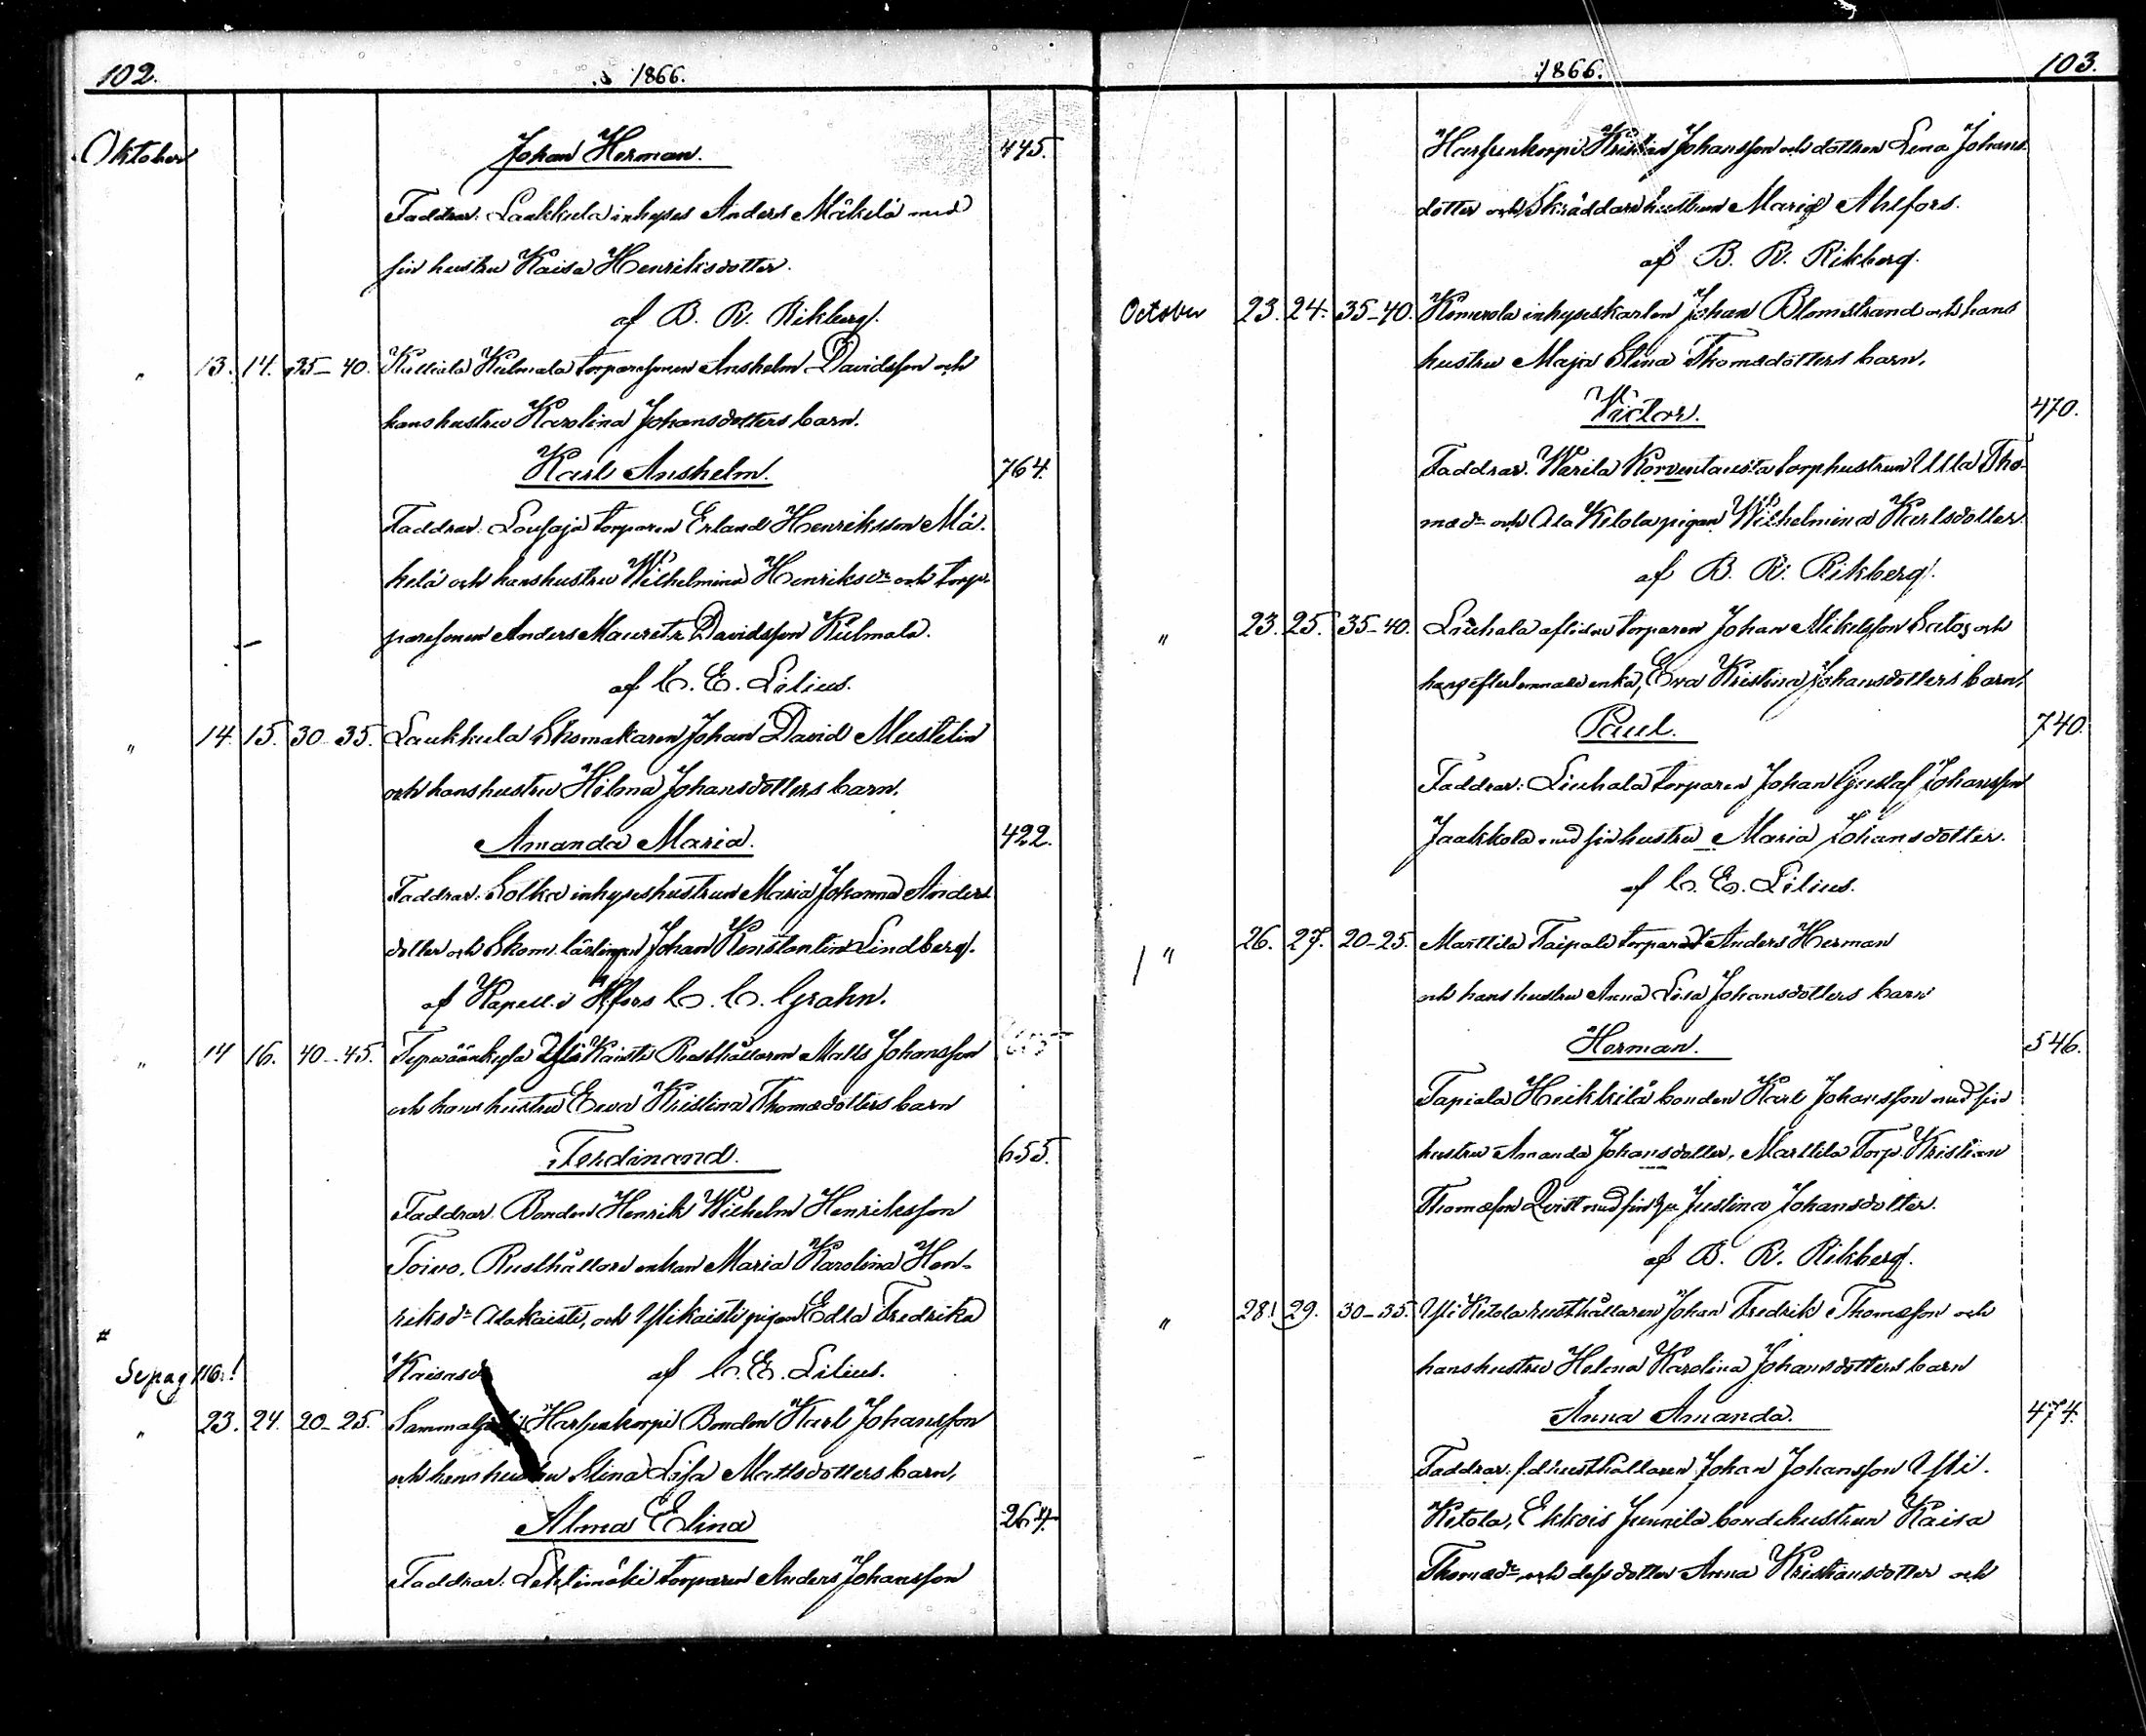 102. 1866.
Oktober Johan Herman. 445.
Faddrar: Laukkula inhyses Anders Mäkelä med
sin hustru Kaisa Henriksdotter.
af B. R. Rikberg.
" 13. 14. 35-40. Kulmala torparesonen Anshelm Davidsson och
hans hustru Karolina Johansdotters barn.
Karl Anshelm. 764.
Faddrar: torparen Erland Henriksson Mä-
kelä och hans hustru Wilhelmina Henriksdr och torp-
paresonen Anders Mauritz Davidsson Kulmala.
af C. E. Lilius.
" 14. 15. 30-35. Laukkula Skomakaren Johan David Mustelin
och hans hustru Helena Johansdotters barn.
Amanda Maria. 422.
Faddrar: Solka inhyseshustrun Maria Johanna Anders
dotter och Skom. lärlingen Johan Konstantin Lindberg.
af Kapell. i Hfors C. C. Grahn.
" 14 16. 40-45. Ylikaisti Rusthållaren Matts Johansson
och hans hustru Eeva Kristina Thomasdotters barn
Ferdinand. 655.
Faddrar. Bonden Henrik Wilhelm Henriksson
Toivo, Rusthållare enkan Maria Karolina Hen-
riksdr Alakaisti, och Ylikaisti pigan Edla Fredrika
Kaisasdr af C. E. Lilius.
#
Se pag 116.!
" 23. 24. 20-25. Harjunkorpi Bonden Karl Johansson
och hans hustru Elina Lisa Mattsdotters barn,
Alma Elina 264.
Faddrar: Lehtimäki torparen Anders Johansson
1866. 103.
Harjunkorpi Kristian Johansson och dottren Lena Johans
dotter och Skräddarehustrun Maria Ahlfors.
af B. R. Rikberg.
October 23. 24. 35-40. inhyseskarlen Johan Blomstrand och hans
hustru Maja Stina Thomasdotters barn.
Victor. 470.
Faddrar. Warila Korventausta torphustrun Ulla Tho-
masdr och Ala Kitola pigan Wilhelmina Karlsdotter.
af B. R. Rikberg.
" 23. 25. 35-40. Liuhala aflidne torparen Johan Mikelsson Salo, och
hans efterlemnade enka, Eva Kristina Johansdotters barn,
Paul. 740.
Faddrar: Liuhala torparen Johan Gustaf Johansson
Jaakkola med sin hustru Maria Johansdotter.
af C. E. Lilius.
" 26. 27. 20-25. Marttila Taipale torparen Anders Herman
och hans hustru Anna Lisa Johansdotters barn
Herman. 546.
Tapiala Heikkilä bonden Karl Johansson med sin
hustru Amanda Johansdotter, Marttila Torp. Kristian
Thomasson Qvist med sin hu Justina Johansdotter.
af B. R. Rikberg.
" 28. 29. 30-35. Yli Kitola rusthållaren Johan Fredrik Thomasson och
hans hustru Helena Karolina Johansdotters barn
Anna Amanda. 474.
Faddrar: f.d. rusthållaren Johan Johansson Yli-
Kitola, Ekkois Junnila bondehustrun Kaisa
Thomasdr och dess dotter Anna Kristiansdotter och